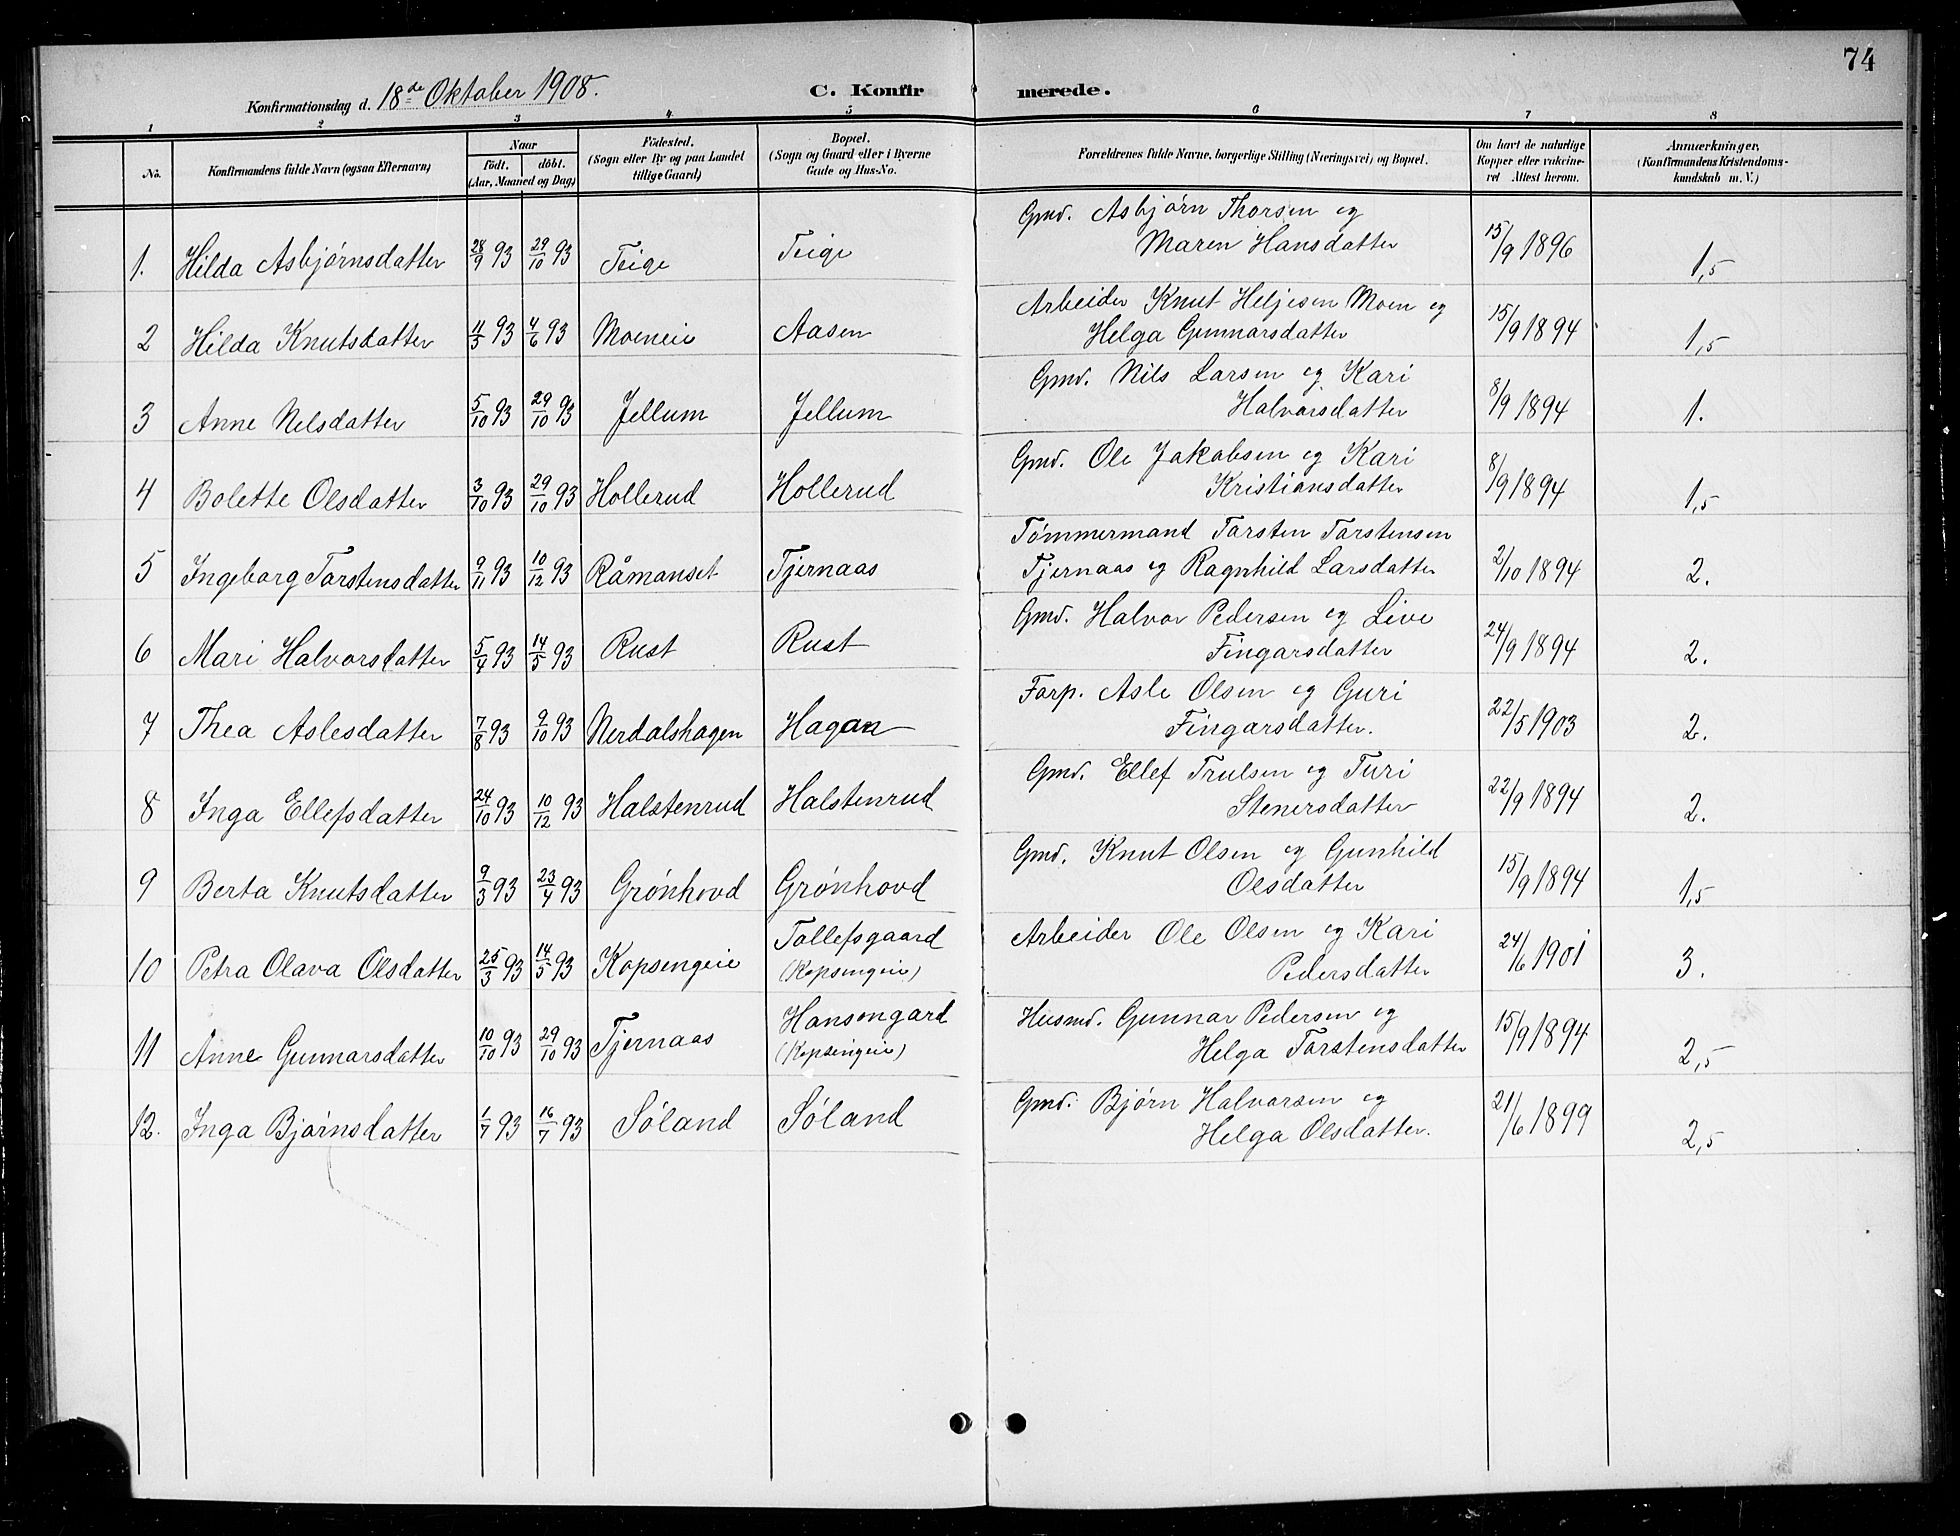 74
Konfirmationsdag d. 18de Oktober 1908.
C. Konfirmerede.
1 2 3 4. 5 6 7 8
No. Konfirmandens fulde Navn (ogsaa Efternavn) Naar født. døbt. (Aar, Maaned og Dag) Födested. (Sogn eller By og paa Landet tillige Gaard) Bopæl. (Sogn og Gaard eller i Byerne Gade og Hus-No. Forældrenes fulde Navne, borgerlige Stilling (Næringsvei) og Bopæl. Om havt de naturlige Kopper eller vakcineret Attest herom. Anmærkninger, (Konfirmandens Kristendomskundskab m. V.)
1. Hilda Asbjørnsdatter 28/9 93 29/10 93 Teige Teige Gmd. Asbjørn Thorsen og Maren Hansdatter 15/9 1896 1,5
2 Hilda Knutsdatter 11/5 93 4/6 93 Moeneie Aasen Arbeider Knut Heljesen Moen og Helga Gunnarsdatter 15/9 1894 1,5
3 Anne Nilsdatter 5/10 93 29/10 93 Jellum Jellum Gmd. Nils Larsen og Kari Halvorsdatter 8/9 1894 1.
4 Bolette Olsdatter 3/10 93 29/10 93 Hollerud Hollerud Gmd. Ole Jakobsen og Kari Kristiansdatter 8/9 1894 1,5
5 Ingeborg Torstensdatter 9/11 93 10/12 93 Råmanset Tjernaas Tømmermand Torsten Torstensen Tjernaas og Ragnhild Larsdatter 2/10 1894 2.
6 Mari Halvorsdatter 5/4 93 14/5 93 Rust Rust Gmd. Halvor Pedersen og Live Fingarsdatter 24/9 1894 2.
7 Thea Aslesdatter 7/8 93 9/10 93 Nerdalshagen Hagan Forp. Asle Olsen og Guri Fingarsdatter. 22/5 1903 2.
8 Inga Ellefsdatter 24/10 93 10/12 93 Halstenrud Halstenrud Gmd. Ellef Trulsen og Turi Stenersdatter 22/9 1894 2.
9 Berta Knutsdatter 9/3 93 23/4 93 Grønhovd Grønhovd Gmd. Knut Olsen og Gunhild Olsdatter 15/9 1894 1,5
10 Petra Olava Olsdatter 25/3 93 14/5 93 Kopsengeie Tollefsgaard (Kopsengeie) Arbeider Ole Olsen og Kari Pedersdatter 24/6 1901 3.
11 Anne Gunnarsdatter 10/10 93 29/10 93 Tjernaas Hansongard (Kopsengeie) Husmd. Gunnar Pedersen og Helga Torstensdatter 15/9 1894 2,5
12. Inga Bjørnsdatter 1/7 93 16/7 93 Søland Søland Gmd. Bjørn Halvorsen og Helga Olsdatter. 21/6 1899 2,5